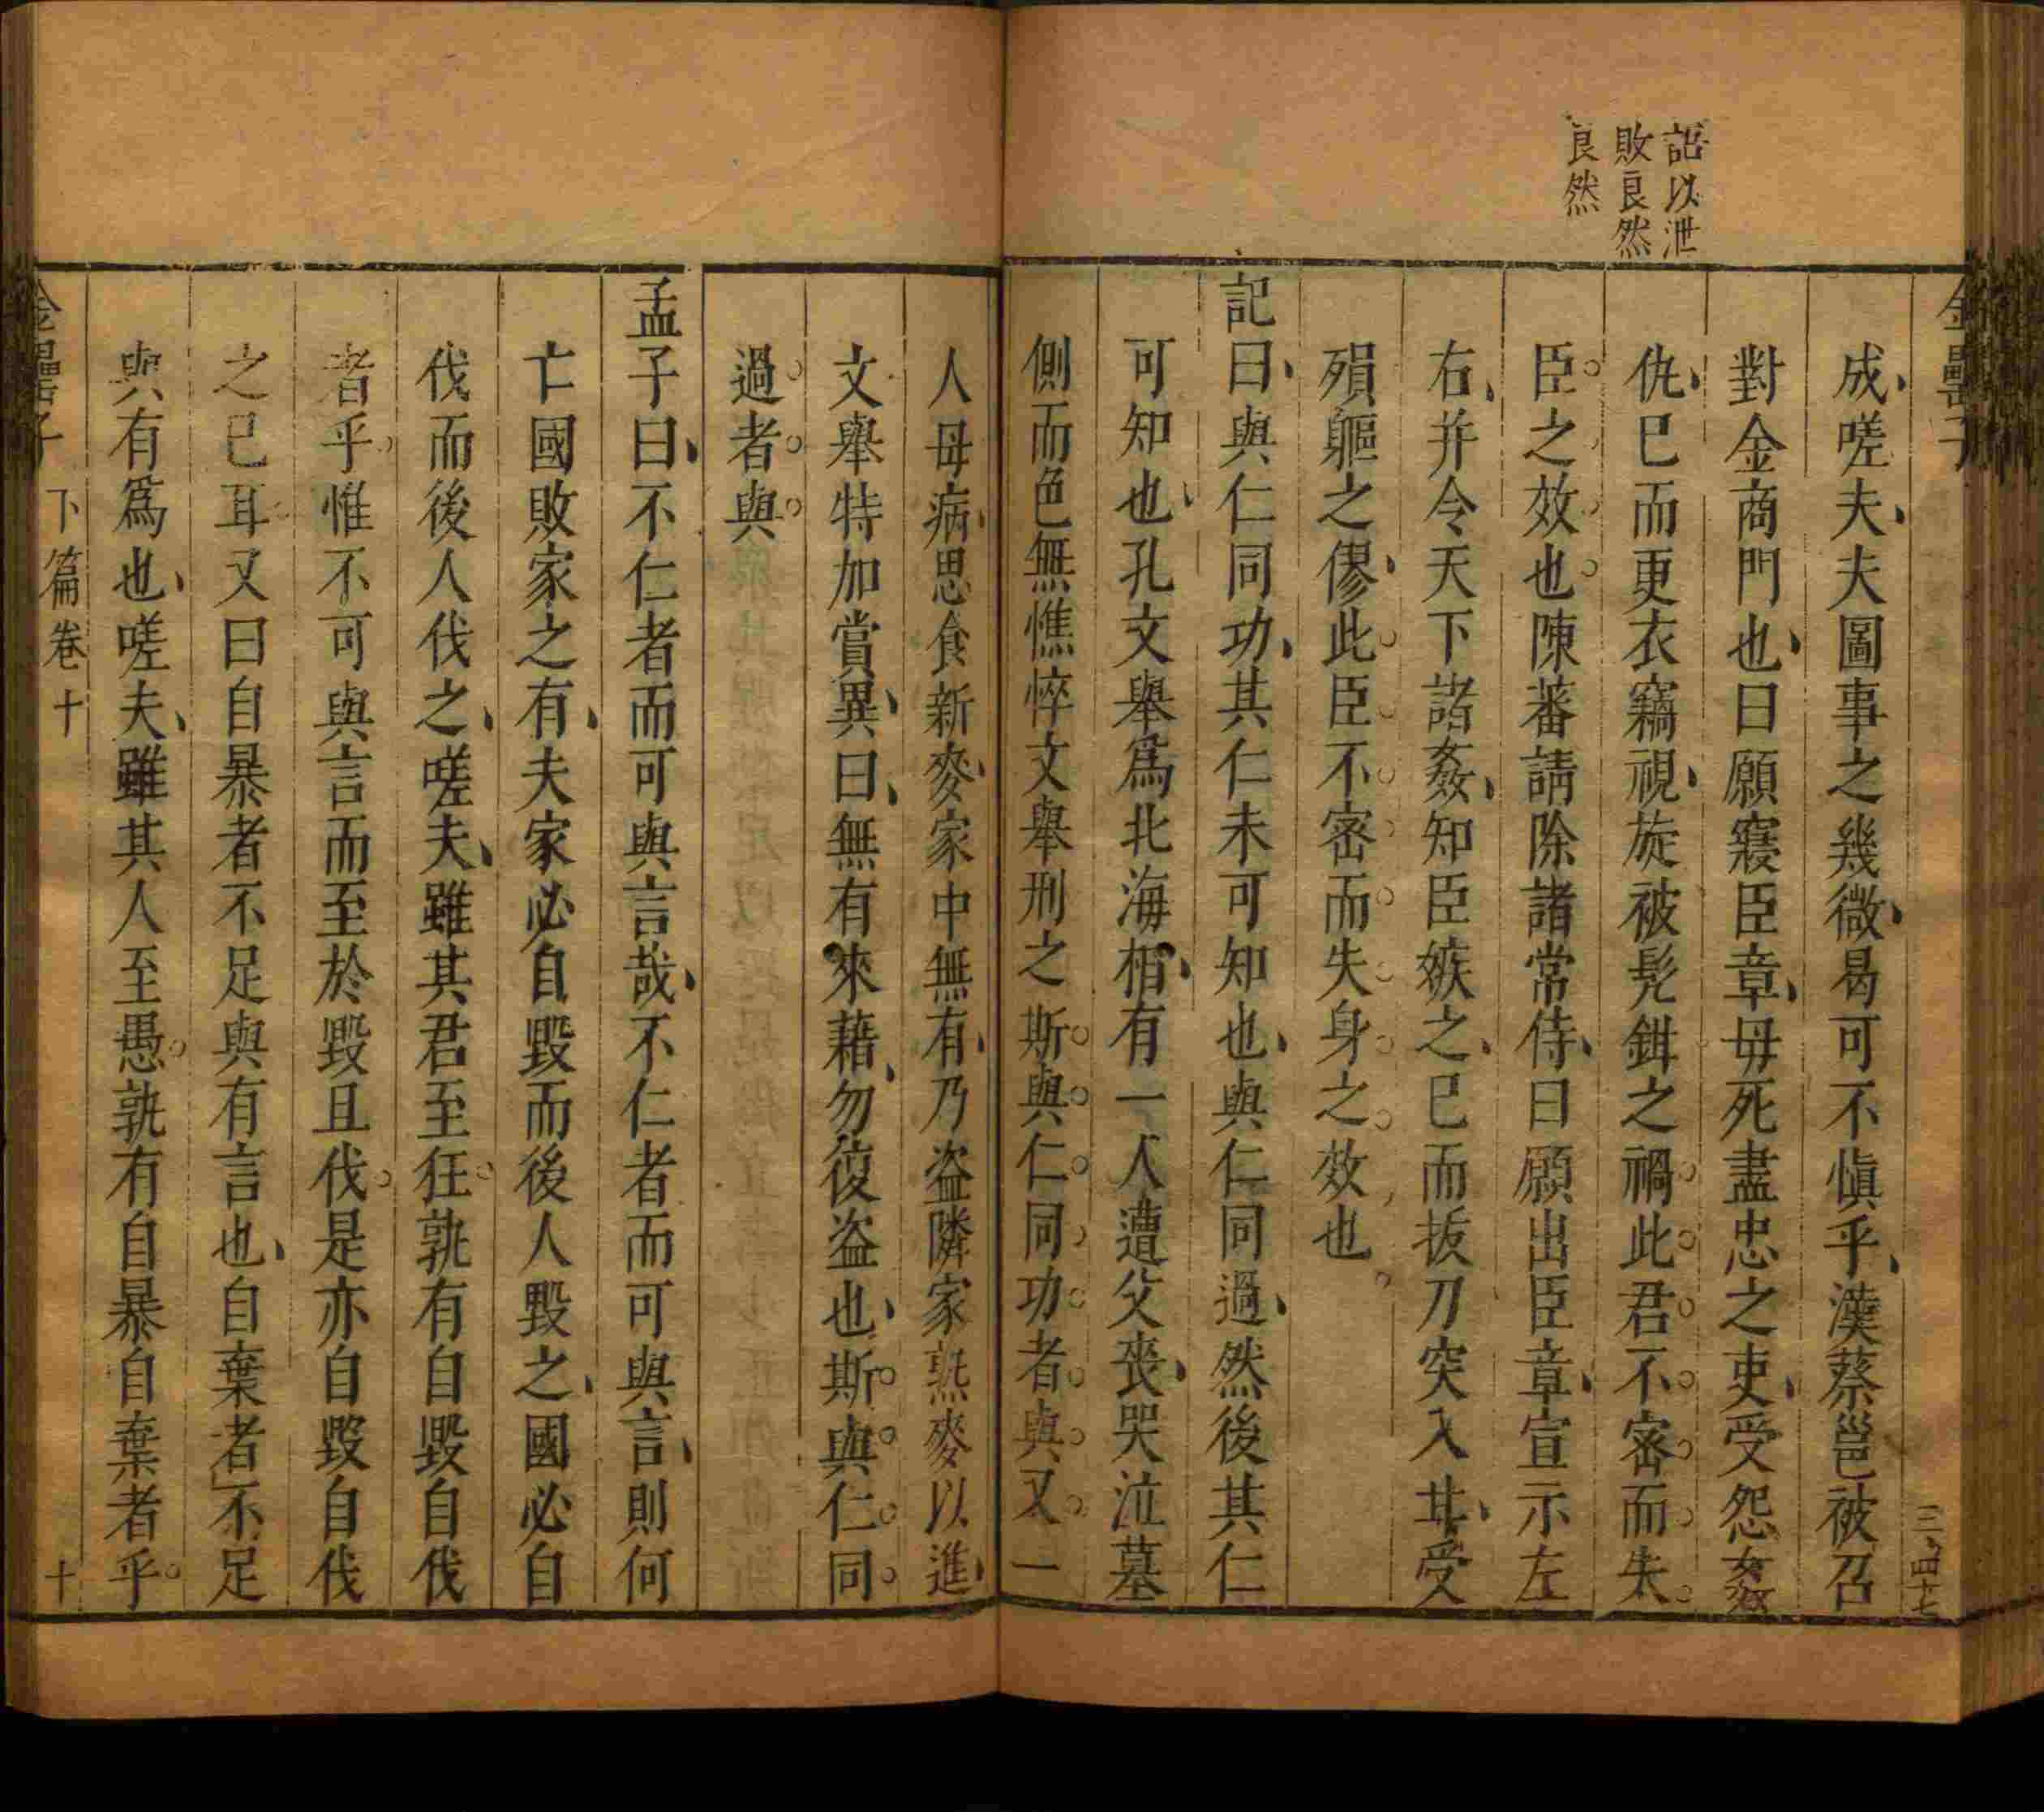 語以泄
敗良然
良然
成嗟夫夫圖事之幾微曷可不慎乎漢蔡邕被召
對金商門也曰願寢臣章毋死盡忠之吏受怨姦
仇已而更衣竊視旋被髡鉗之禍此君不密而失
臣之效也陳蕃請除諸常侍曰願出臣章宣示左
右并令天下諸姦知臣嫉之已而拔刀突入其受
殞軀之僇此臣不密而失身之效也
記曰與仁同功其仁未可知也與仁同過然後其仁
可知也孔文舉為北海相有一人遭父喪哭泣墓
側而色無憔悴文舉刑之斯與仁同功者與又一
人母病思食新麥家中無有乃盜隣家熟麥以進
文舉特加賞異曰無有來藉勿復盜也斯與仁同
過者與
孟子曰不仁者而可與言哉不仁者而可與言則何
亡國敗家之有夫家必自毀而後人毀之國必自
伐而後人伐之嗟夫雖其君至狂孰有自毀自伐
者乎惟不可與言而至於毀且伐是亦自毀自伐
之已耳又曰自暴者不足與有言也自棄者不足
與有為也嗟夫雖其人至愚孰有自暴自棄者乎
金罍子 下篇卷十 十